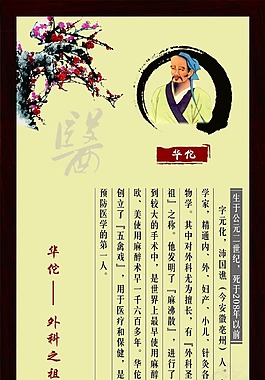 醫
华佗
生于公元二世纪，死于208年以前
字元化，沛国谯（今安徽亳州）人。
学家，精通内、外、妇产、小儿、针灸各
物学。其中对外科尤为擅长，有『外科圣
祖』之称。他发明了『麻沸散』，进行了
到较大的手术中，是世界上最早使用麻醉
欧、美使用麻醉术早一千六百多年。华佗
创立了『五禽戏』，用于医疗和保健，是
预防医学的第一人。
华佗——外科之祖